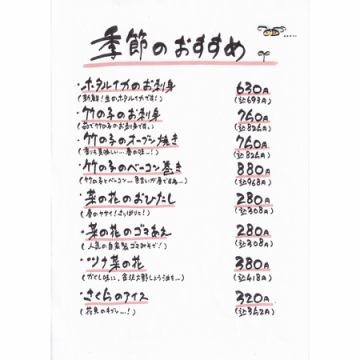 季節のおすすめ
・ホタルイカのお刺身 630円
(新鮮!生のホタルイカです!) (込693円)
・竹の子のお刺身 760円
(茹で竹の子のお刺身です。) (込826円)
・竹の子のオーブン焼き 760円
(香りも美味しい…春の味…!) (込826円)
・竹の子のベーコン巻き 880円
(竹の子とベーコン… (込968円)
・菜の花のおひたし 280円
(春のヤサイ!さっぱりと!) (込308円)
・菜の花のゴマあえ 280円
(人気の自家製ゴマみそで!) (込308円)
・ツナ菜の花 380円
(込418円)
・さくらのアイス 320円
(花見のキブン…!) (込352円)